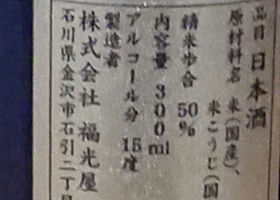 品目 日本酒
原材料名 米(国産)、
米こうじ(国
精米歩合 50%
内容量 300ml
アルコール分 15度
製造者
株式会社 福光屋
石川県金沢市石引二丁目